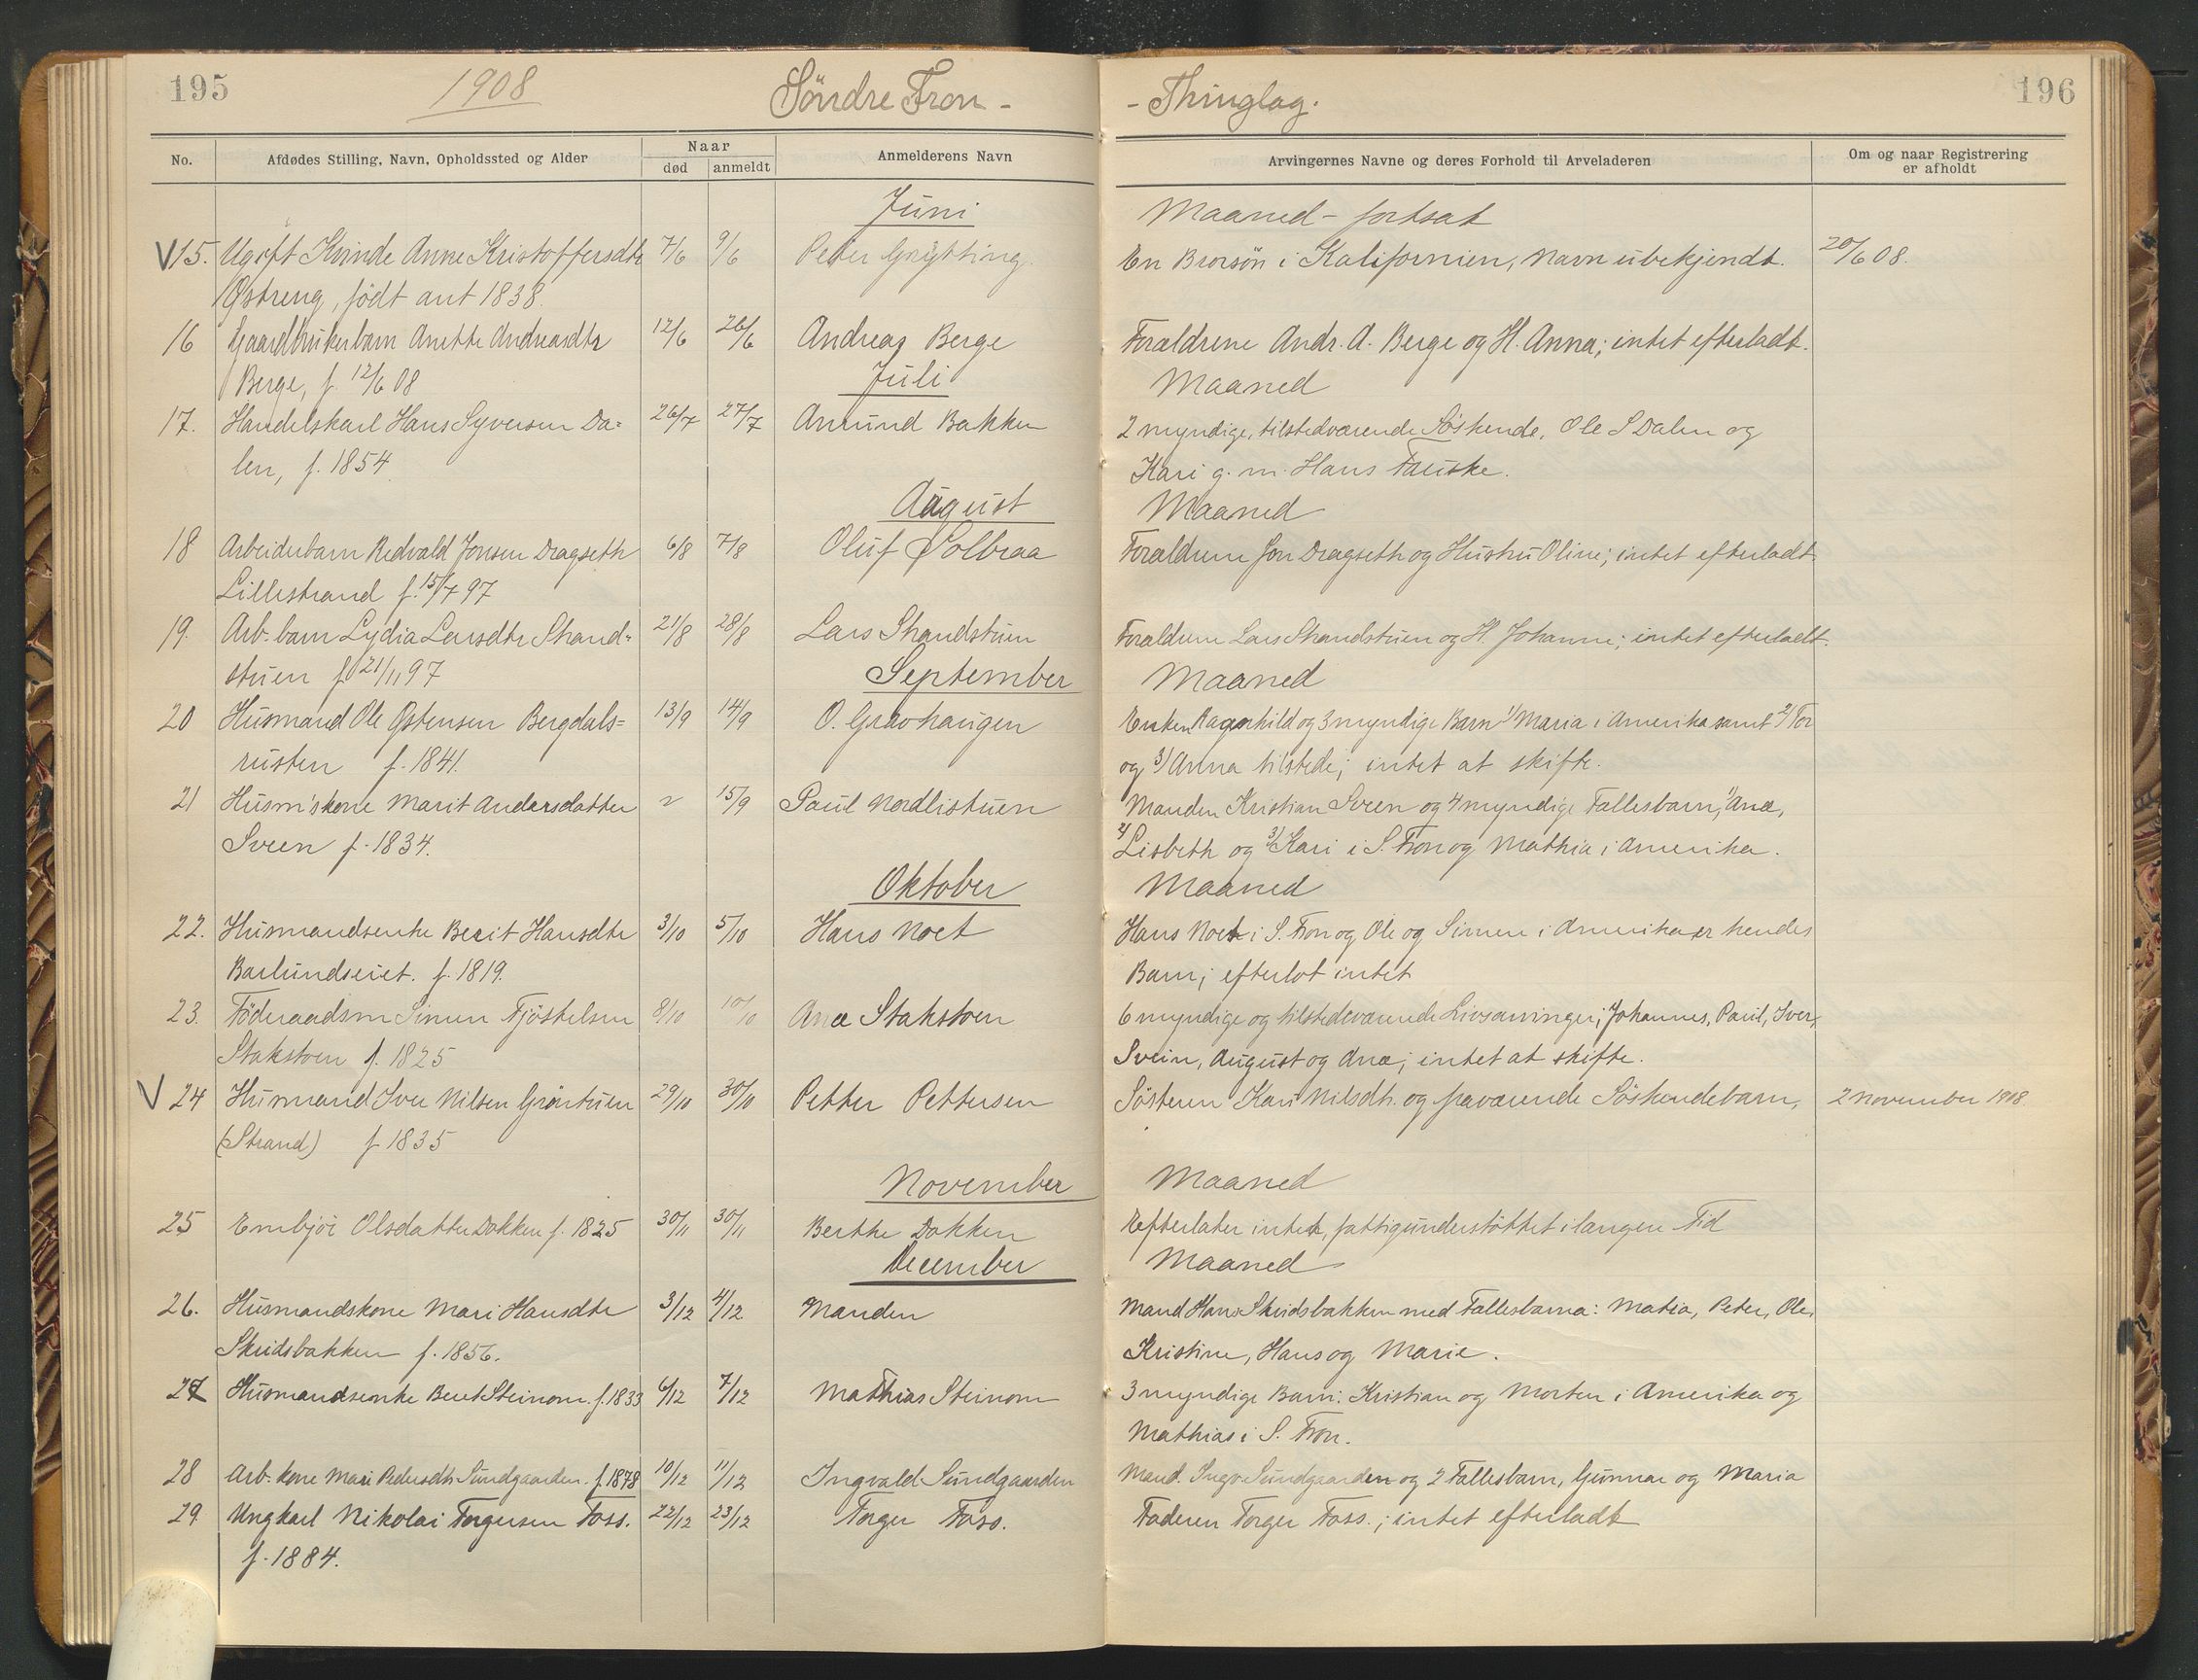 195
1908
Söndre Fron -
- Thinglag.
196
No.
Afdødes Stilling, Navn, Opholdssted og Alder
Naar
død
anmeldt
Anmelderens Navn
Arvingernes Navne og deres Forhold til Arveladeren
Om og naar Registrering
er afholdt
Juni Maaned - fortsat
V 15. Ugift Kvinde Anne Kristoffersdtr 7/6 9/6 Peter Grytting. En Brorsön i Kalifornien, Navn ubekjendt. 20/6 08.
Östreng, födt ant 1838.
16 Gaardbrukerbarn Anette Andreasdtr 12/6 26/6 Andreas Berge Forældrene Andr. A. Berge og H. Anna; intet efterladt.
Berge, f. 12/6 08
Juli Maaned
17. Handelskarl Hans Syversen Da= 26/7 27/7 Amund Bakken 2 myndige, tilstedværende Söskende, Ole S Dalen og
len, f. 1854 Kari g. m. Hans Fauske.
August Maaned
18 Arbeiderbarn Redvald Jonsen Dragseth 6/8 7/8 Oluf Solbraa Forældrene Jon Dragseth og Hustru Oline; intet efterladt.
Lillestrand f. 15/7 97
19. Arb. barn Lydia Larsdtr Strand= 21/8 28/8 Lars Strandstuen Forældrene Lars Strandstuen og H. Johanne; intet efterladt.
stuen f 21/11 97
September Maaned
20 Husmand Ole Östensen Bergdals= 13/9 14/9 O. Gravhaugen Enken Ragnhild og 3 myndige Barn 1/ Maria i Amerika samt 2/ Tor
rusten f. 1841. og 3/ Anna tilstede; intet at skifte.
21 Husm'skone Marit Andersdatter 15/9 Paul Nordlistuen Manden Kristian Sveen og 4 myndige Fællesbarn, 1/ Ane,
Sveen f. 1834. 2/ Lisbeth og 3/ Kari i S. Fron og Mathia i Amerika.
Oktober Maaned
22. Husmandsenke Berit Hansdtr 3/10 5/10 Hans Noet Hans Noet i S. Fron og Ole og Simen i Amerika er hendes
Barlundseiet. f. 1819. Barn; efterlot intet
23. Föderaadsm Simen Fjöstelsen 8/10 10/10 Ane Stakstoen 6 myndige og tilstedeværende Livsarvinger; Johannes, Paul, Iver,
Stakstoen f. 1825 Svein, August og Ane; intet at skifte.
V 24 Husmand Iver Nilsen Gröntuen 29/10 30/10 Petter Pettersen Sösteren Kari Nilsdtr. og fraværende Söskendebarn, 2 November 1908
(Strand) f 1835
November Maaned
25 Embjör Olsdatter Dokken f. 1825 30/11 30/11 Berthe Dokken Efterlater intet, fattigunderstöttet i langen Tid
December Maaned
26. Husmandskone Mari Hansdtr 3/12 4/12 Manden Mand Hans Skridsbakken med Fællesbarna: Matia, Peter, Ole,
Skridsbakken f. 1856. Kristine, Hans og Marie.
27 Husmandsenke Beret Steinom. f. 1833 6/12 7/12 Mathias Steinom 3 myndige Barn: Kristian og Morten i Amerika og
Mathias i S. Fron.
28 Arb. kone Mari Pedersdtr Sundgaarden. f. 1878 10/12 11/12 Ingvald Sundgaarden Mand. Ingv. Sundgaarden og 2 Fællesbarn, Gunnar og Maria
29 Ungkarl Nikolai Torgersen Foss. 22/12 23/12 Torger Foss. Faderen Torger Foss.; intet efterladt
f. 1884.